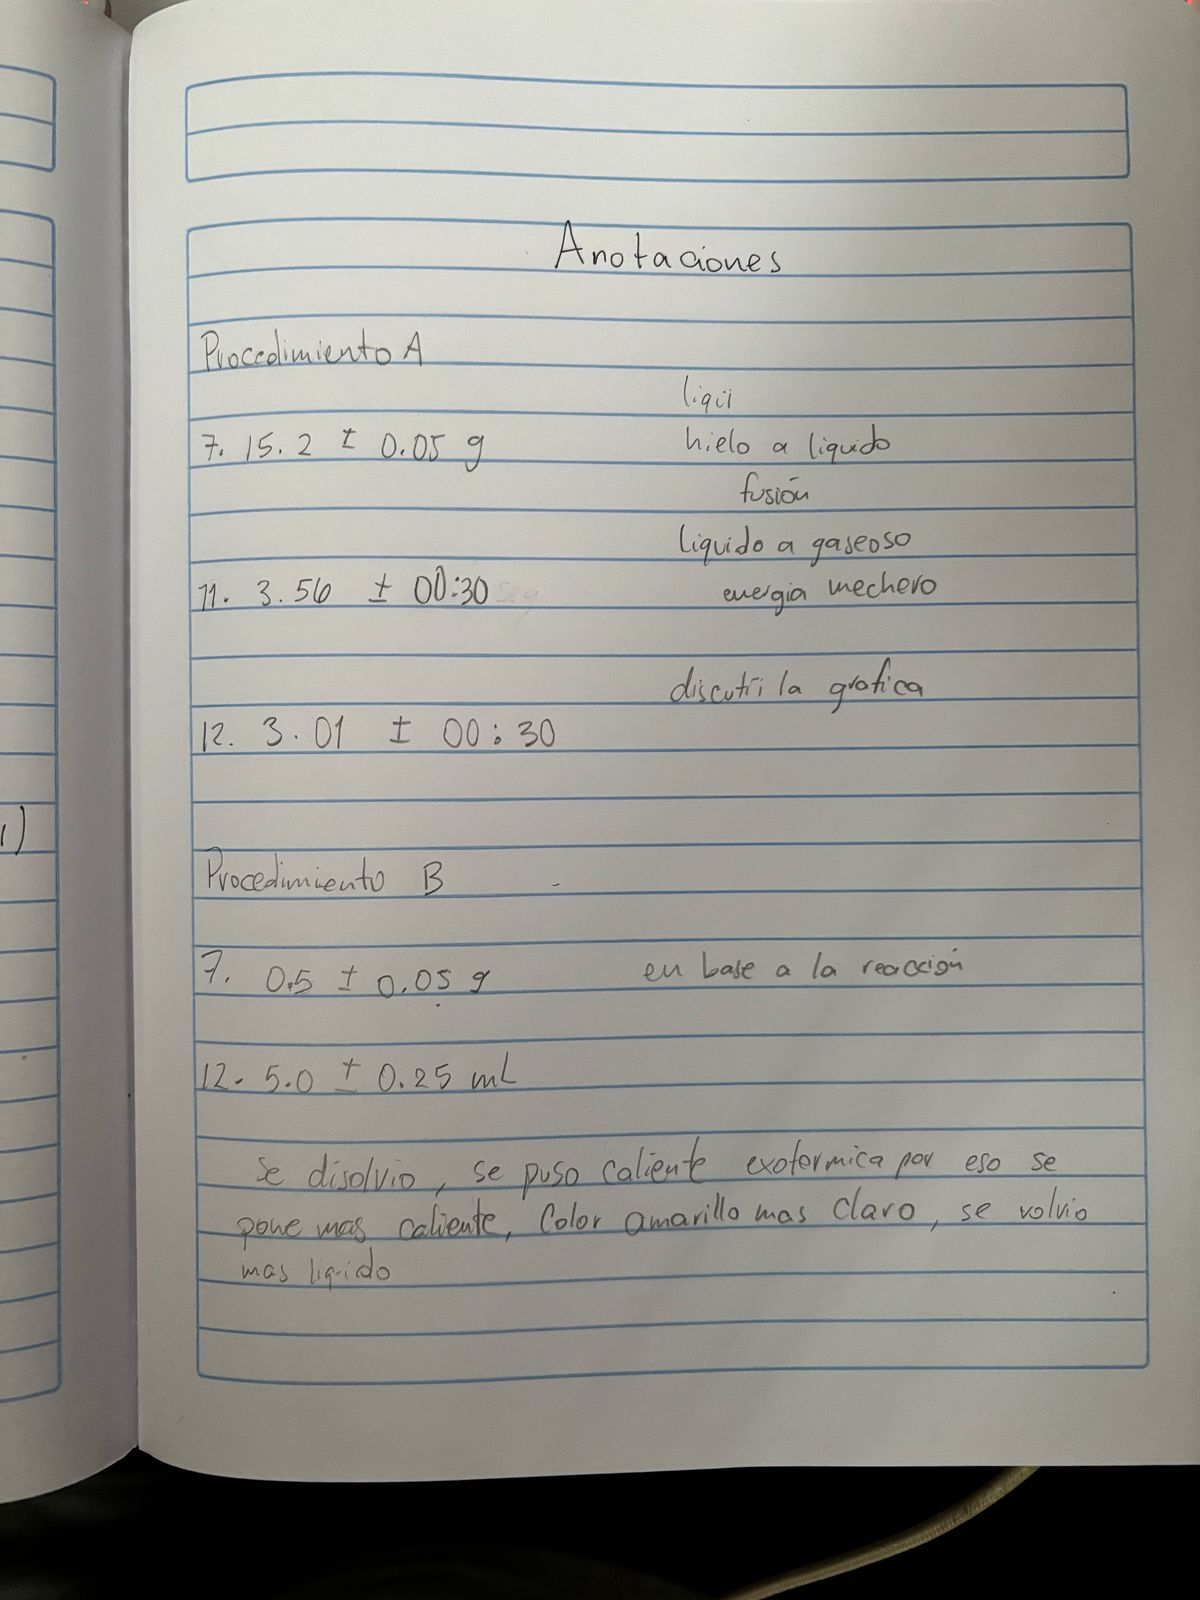 Anotaciones
Procedimiento A
liqui
7. 15.2 ± 0.05 g
hielo a liquido
fusión
liquido a gaseoso
11. 3.56 ± 00:30 seg
energia mechero
discutri la grafica
12. 3.01 ± 00:30
1)
Procedimiento B
7. 0.5 ± 0.05 g
en base a la reacción
12. 5.0 ± 0.25 mL
se disolvio, se puso caliente exotermica por eso se
pone mas caliente, Color amarillo mas claro, se volvio
mas liquido